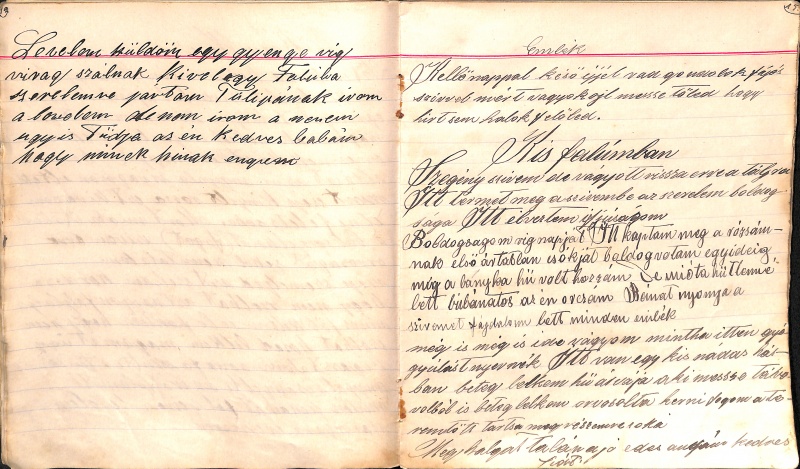 Levelem küldöm egy gyenge vig
virag szálnak Kivel egy Faluba
szerelemre jártam Tulipánnak irom
a levelem de nem irom a nevem
ugyis Tudja az én Kedves babám
hogy minek hinak engem
Emlék
szivvel miért vagyok ojl messze töled hogy
hirt sem halok felöled.
Kis falúmban
Szegény szivem de vágyott vissza erre a tájra
Itt termet meg a szivembe az szerelem boldog
sága Itt élveztem ifjúságom
Boldogsagom vig napját Itt kaptam meg a rózsám-
nak első ártatlan csókját boldog votam egy ideig
mig a lányka hű volt hozzám De mióta hűtlenné
lett búbánatos az én orcsam Bánat nyomja a
szivemet fájdalom lett minden emlék
még is még is ide vágyom mintha itten gyó
gyulást nyernék Itt van egy kis nádas ház
ban beteg lelkem hű ápolója aki messze távo
volból is beteg lelkem orvosolta kérni fogom a te-
remtőt tartsa meg részemre soká
Meg halgat talán a jó edes anyám kedves